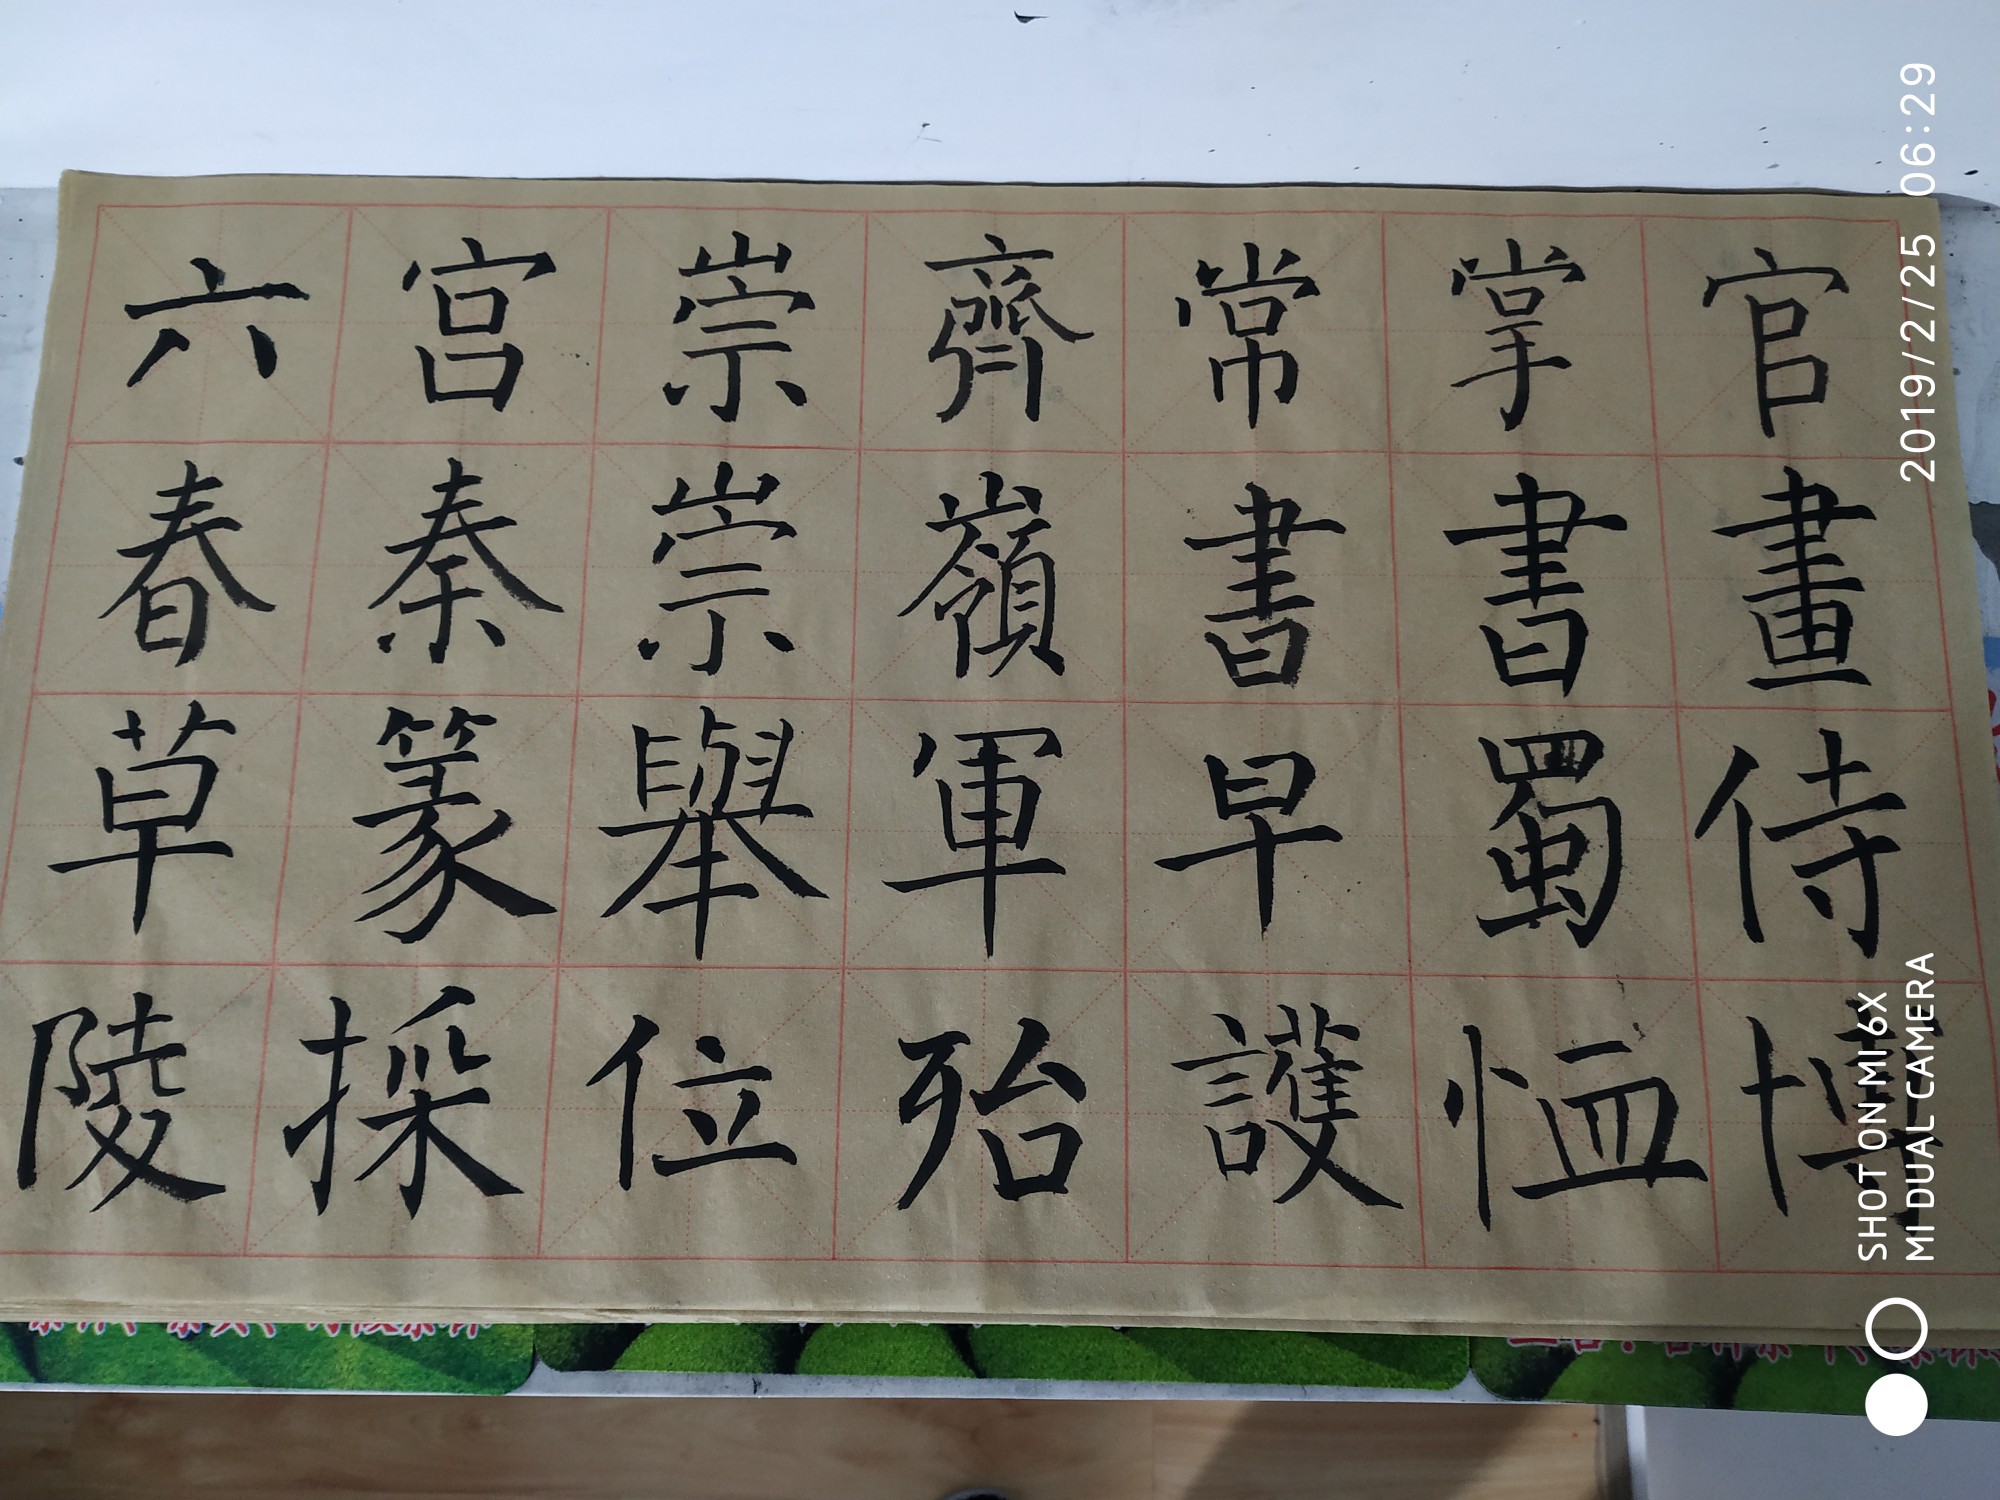 六宫崇齊常掌官
春秦崇嶺書書畫
草篆舉軍早蜀侍
陵採位殆護恤博
2019/2/25 06:29
SHOT ON MI 6X
MI DUAL CAMERA